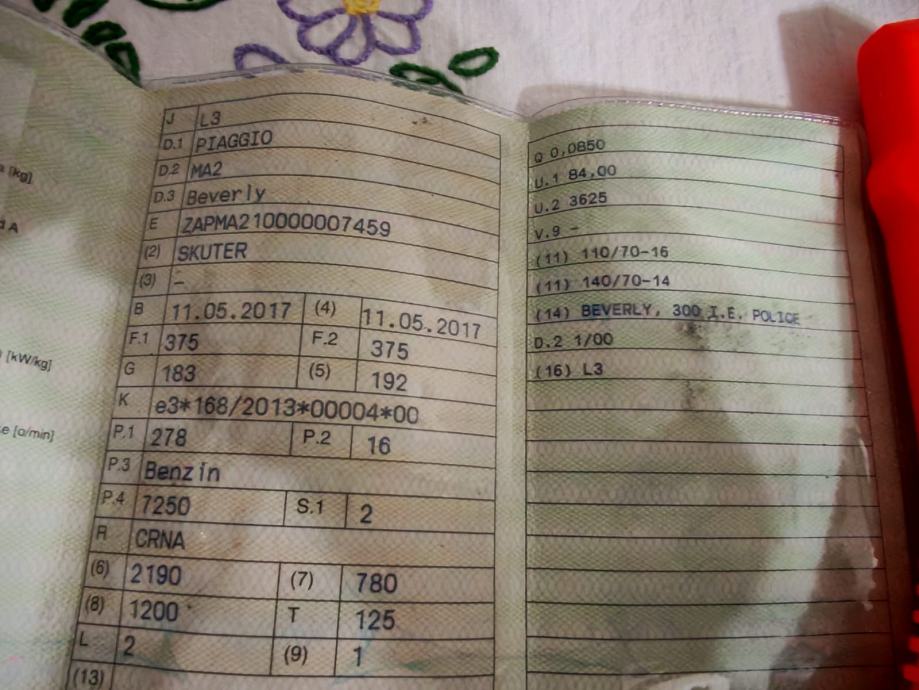 [kg]
A
[kW/kg]
[o/min]
J L3
D.1 PIAGGIO
D.2 MA2
D.3 Beverly
E ZAPMA210000007459
(2) SKUTER
(3) -
B 11.05.2017 (4) 11.05.2017
F.1 375 F.2 375
G 183 (5) 192
K e3*168/2013*00004*00
P.1 278 P.2 16
P.3 Benzin
P.4 7250 S.1 2
R CRNA
(6) 2190 (7) 780
(8) 1200 T 125
L 2 (9) 1
(13)
Q 0,0850
U.1 84,00
U.2 3625
V.9 -
(11) 110/70-16
(11) 140/70-14
(14) BEVERLY, 300 I.E. POLICE
D.2 1/00
(16) L3